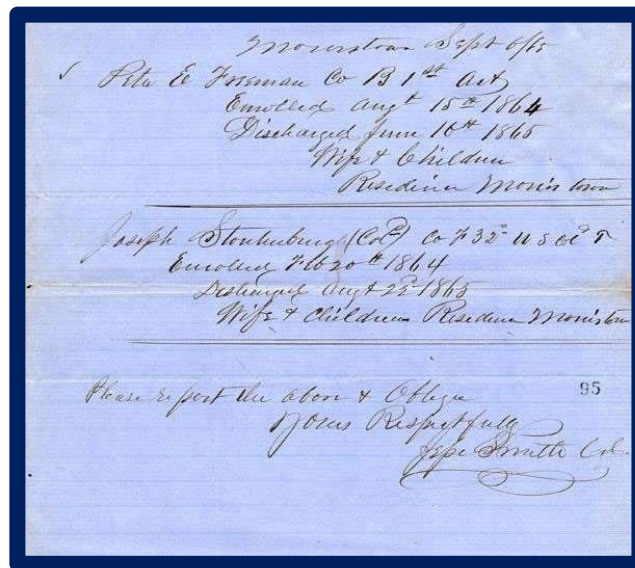 Morristown Sept 6/65
Peter E Freeman Co B 1st Art
Enrolled Augt 15th 1864
Discharged June 16th 1865
Wife & Children
Residence Morristown
Joseph Stoutenburgh (Cold) Co F 32d U S Cld T
Enrolled Feb 20th 1864
Discharged Augt 22d 1865
Wife & Children Residence Morristown
Please report the above & Oblige
95
Yours Respectfully
Jesse Smith Col.